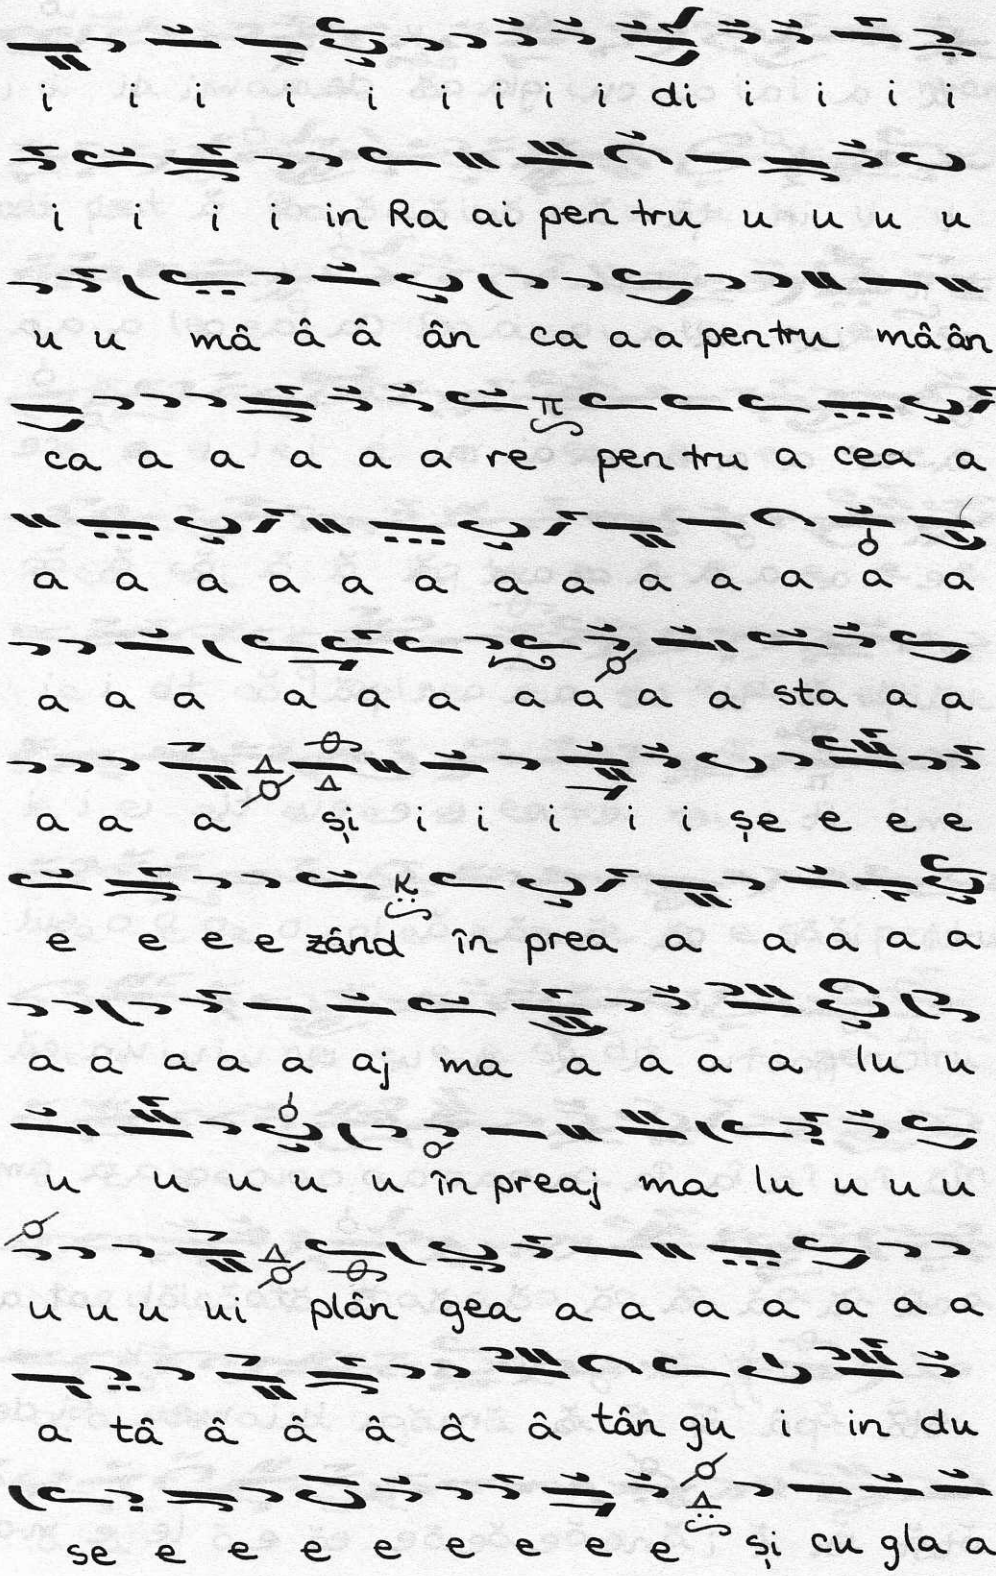 i i i i i i i i i di i i i i
i i i i in Ra ai pen tru u u u u
u u mâ â â ân ca a a pentru mâ ân
ca a a a a a re pen tru a cea a
a a a a a a a a a a a a a
a a a a a a a a a a sta a a
a a a și i i i i i șe e e e
e e e e zând în prea a a a a a
a a a a a aj ma a a a a lu u
u u u u u în preaj ma lu u u u
u u u ui plân gea a a a a a a a
a tâ â â â â â tân gu i in du
se e e e e e e e e și cu gla a